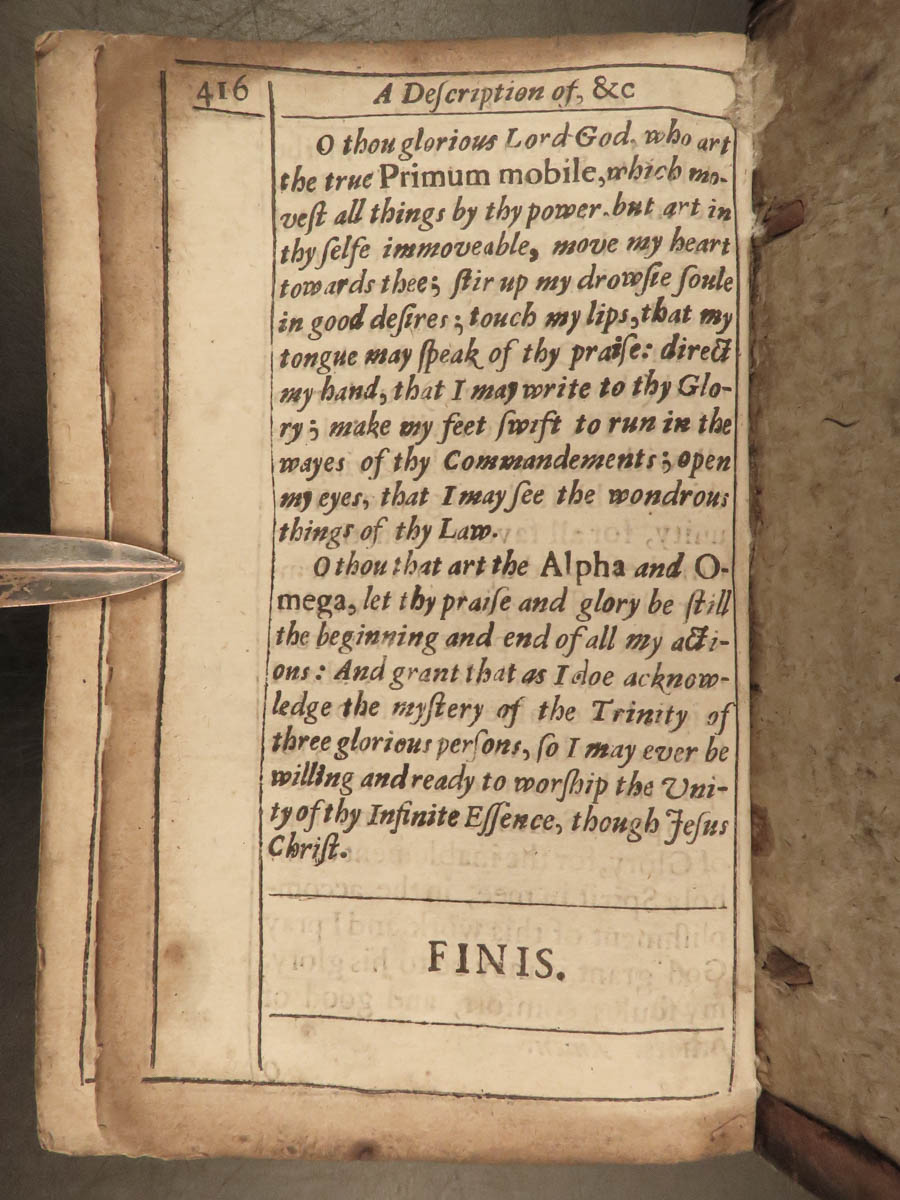 416
A Deſcription of, &c
O thou glorious Lord God, who art
the true Primum mobile, which mo-
veſt all things by thy power, but art in
thy ſelfe immoveable, move my heart
towards thee; ſtir up my drowſie ſoule
in good deſires; touch my lips, that my
tongue may ſpeak of thy praiſe: direct
my hand, that I may write to thy Glo-
ry; make my feet ſwift to run in the
wayes of thy Commandements; open
my eyes, that I may ſee the wondrous
things of thy Law.
O thou that art the Alpha and O-
mega, let thy praiſe and glory be ſtill
the beginning and end of all my acti-
ons: And grant that as I doe acknow-
ledge the myſtery of the Trinity of
three glorious perſons, ſo I may ever be
willing and ready to worſhip the Uni-
ty of thy Infinite Eſſence, though Jeſus
Chriſt.
FINIS.